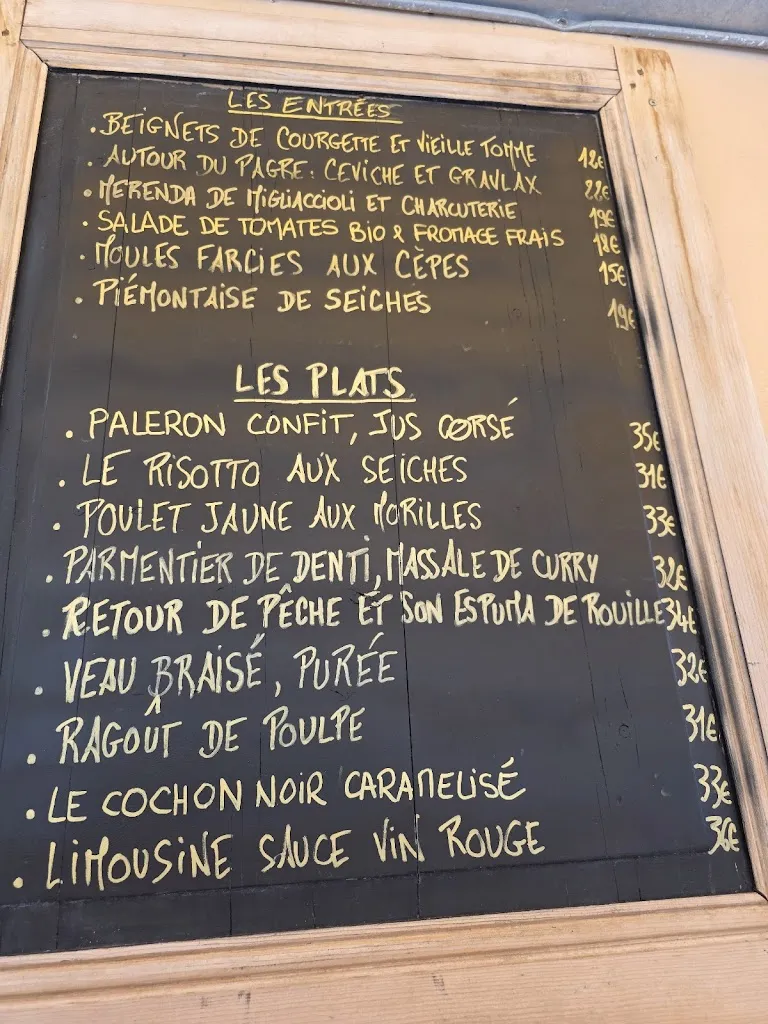 LES ENTRÉES
. BEIGNETS DE COURGETTE ET VIEILLE TOMME 18€
. AUTOUR DU PAGRE : CEVICHE ET GRAVLAX 22€
. MERENDA DE MIGLIACCIOLI ET CHARCUTERIE 19€
. SALADE DE TOMATES BIO & FROMAGE FRAIS 18€
. MOULES FARCIES AUX CÈPES 15€
. PIÉMONTAISE DE SEICHES 19€
LES PLATS
. PALERON CONFIT, JUS CORSÉ 35€
. LE RISOTTO AUX SEICHES 31€
. POULET JAUNE AUX MORILLES 33€
. PARMENTIER DE DENTI, MASSALE DE CURRY 32€
. RETOUR DE PÊCHE ET SON ESPUMA DE ROUILLE 34€
. VEAU BRAISÉ, PURÉE 32€
. RAGOÛT DE POULPE 31€
. LE COCHON NOIR CARAMELISÉ 33€
. LIMOUSINE SAUCE VIN ROUGE 36€